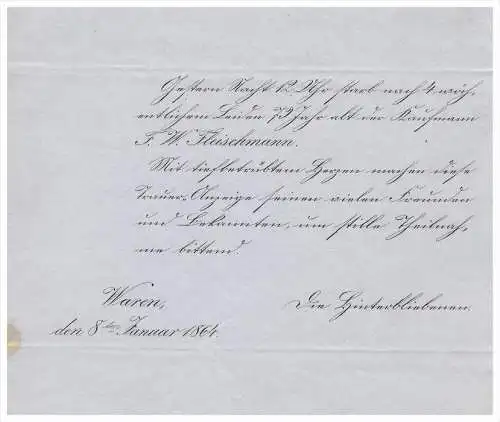 Gestern Nacht 12 Uhr starb nach 4 wöch-
entlichem Leiden 73 Jahr alt der Kaufmann
F. W. Fleischmann.
Mit tiefbetrübtem Herzen machen diese
Trauer-Anzeige seinen vielen Freunden
und Bekannten, um stille Theilnah-
me bittend.
Die Hinterbliebenen.
Waren,
den 8ten Januar 1864.